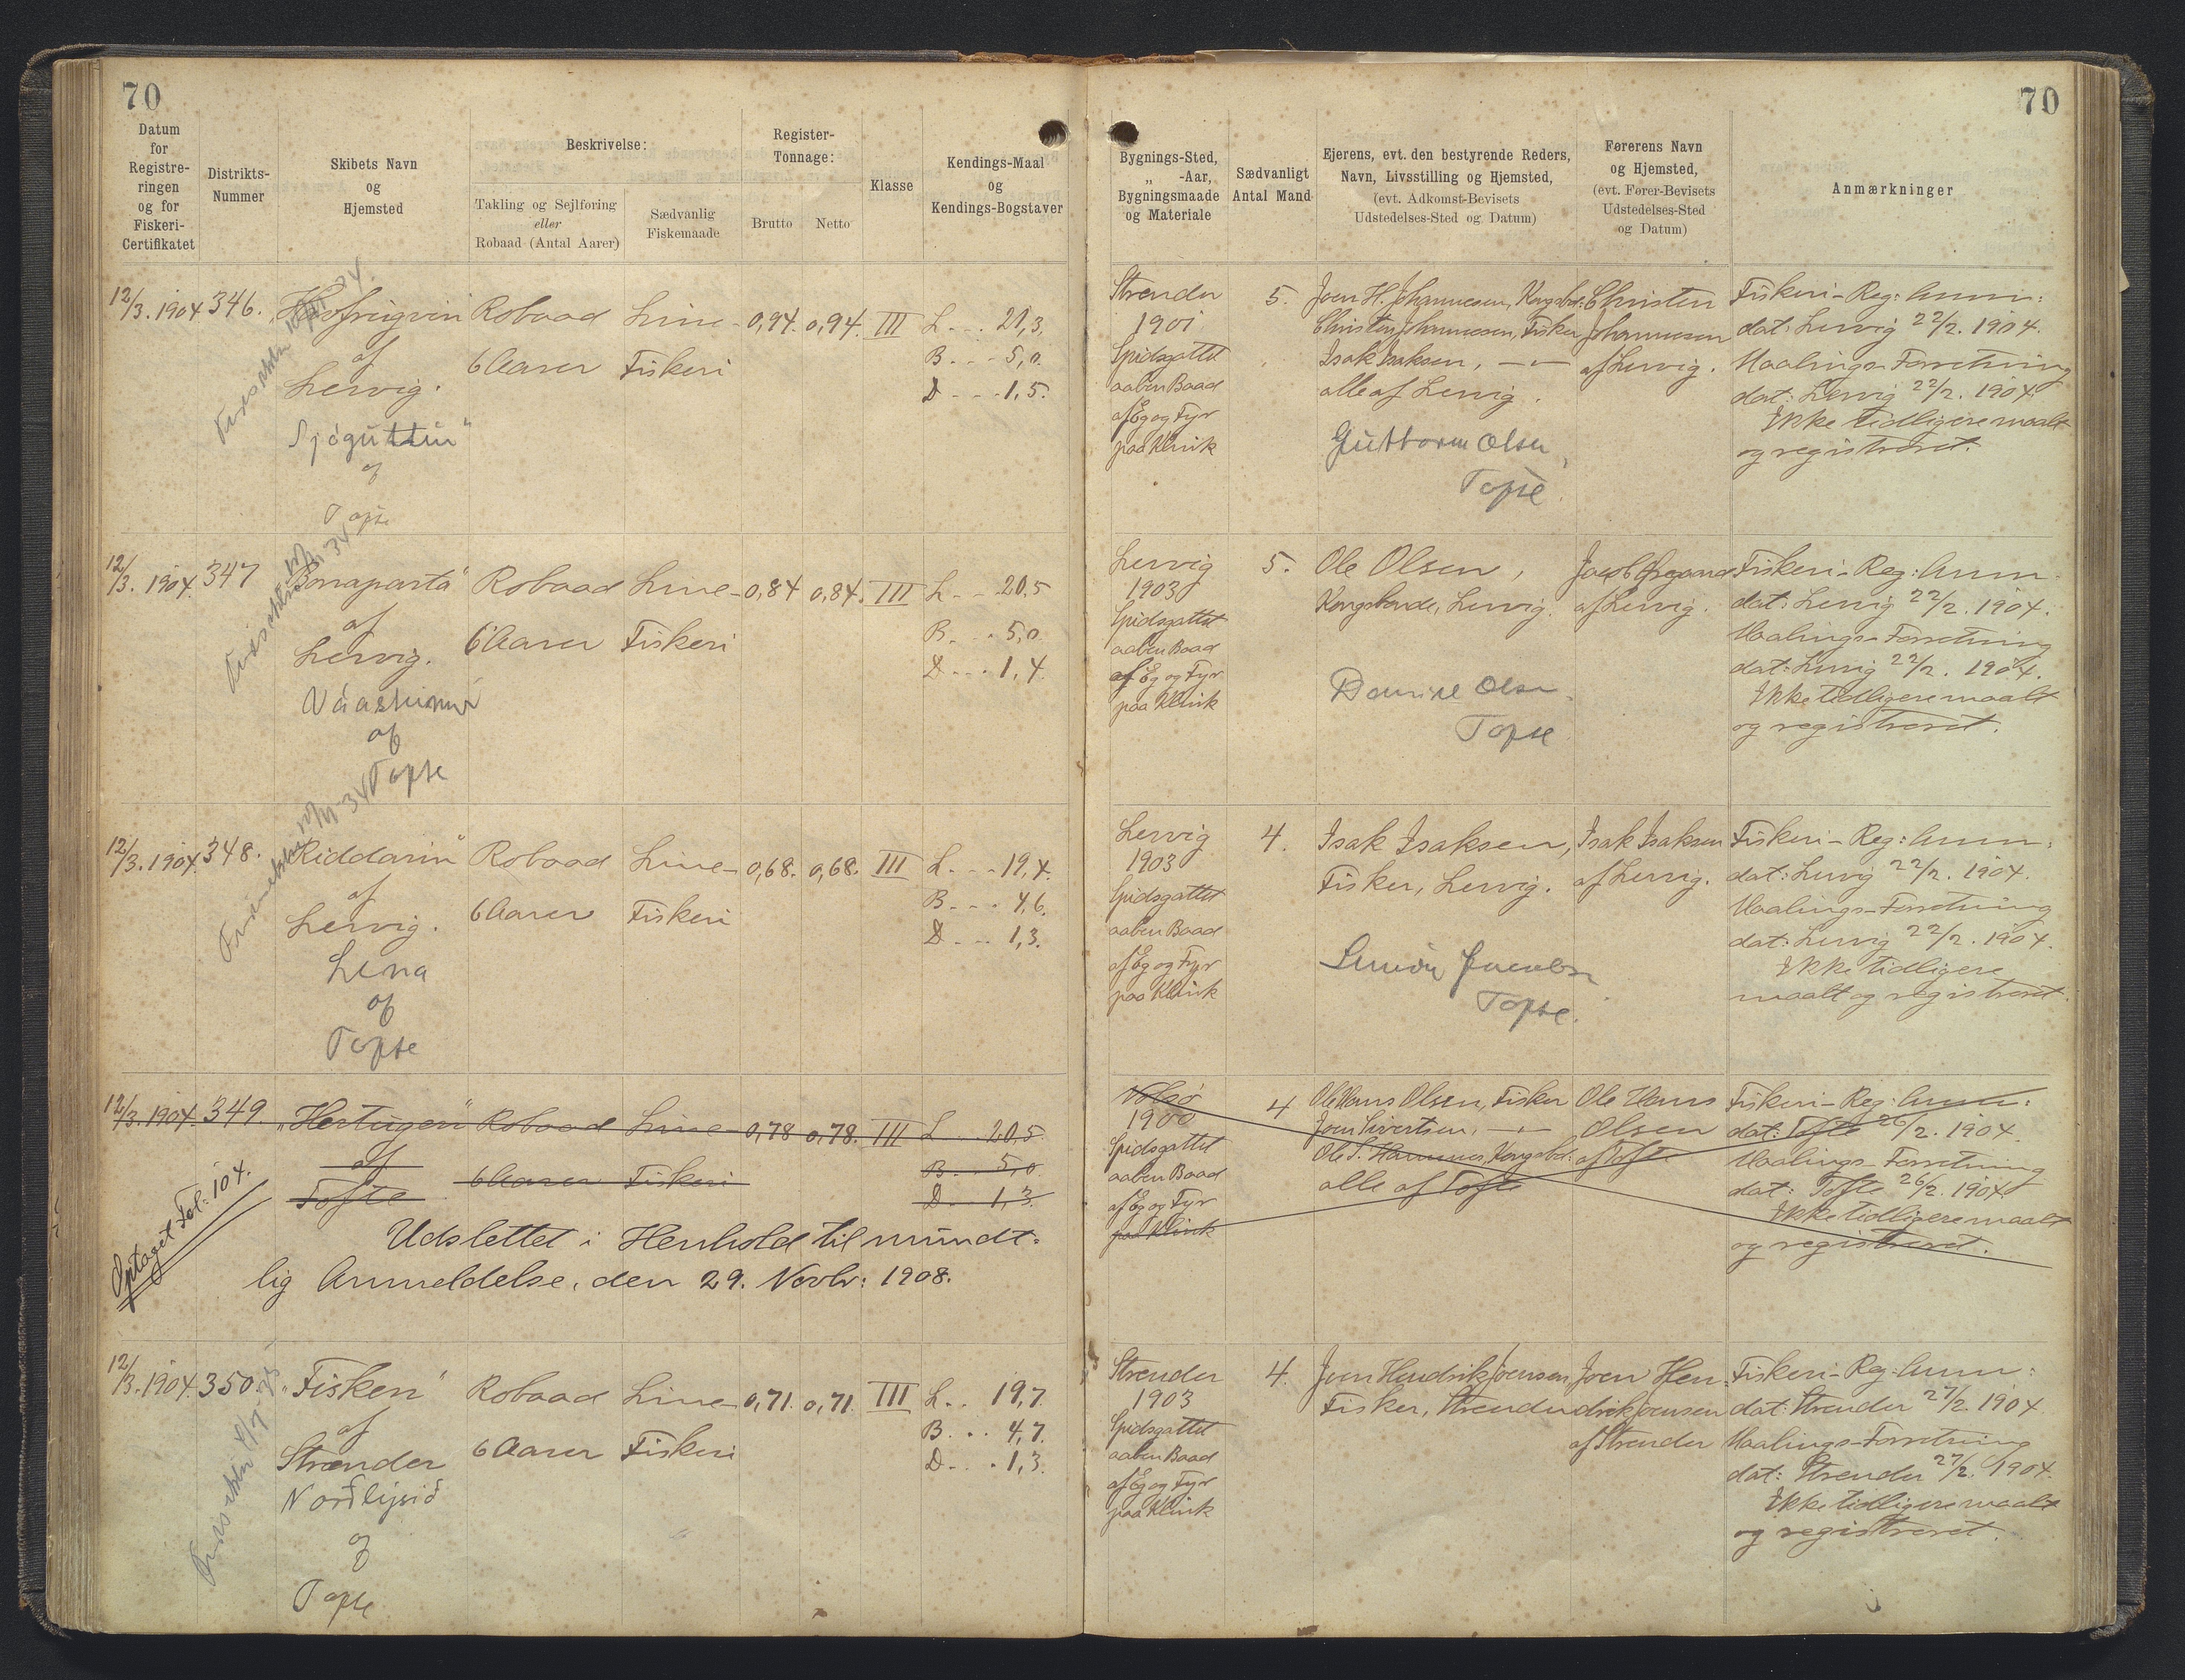 70
Datum
for
Registre-
ringen
og for
Fiskeri-
Certifikatet
Distrikts-
Nummer
Skibets Navn
og
Hjemsted
Beskrivelse:
Takling og Sejlføring
eller
Robaad (Antal Aarer)
Sædvanlig
Fiskemaade
Register-
Tonnage:
Brutto
Netto
Klasse
Kendings-Maal
og
Kendings-Bogstaver
12/3. 1904
346.
af
Lervig.
Robaad
6 Aarer
Line-
Fiskeri
0,94.
0,94.
III
L... 21,3.
B... 5,0.
D... 1,5.
Sjóguttur"
af
Tofte
12/3. 1904.
347
"Bonaparta"
af
Lervig.
Robaad
6 Aarer
Line-
Fiskeri
0,84
0,84.
III
L... 20,5
B... 5,0.
D... 1,4.
af
Tofte
12/3. 1904.
348.
"Riddarin"
af
Lervig.
Robaad
6 Aarer
Line-
Fiskeri
0,68.
0,68.
III
L... 19,4.
B... 4,6.
D... 1,3.
Lena
af
Tofte
12/3. 1904.
349.
"Hertugen"
af
Tofte
Robaad
6 Aarer
Line-
Fiskeri
0,78
0,78.
III
L... 20,5
B... 5,0
D... 1,3.
Optaget Fol: 104.
Udslettet i Henhold til mundt-
lig Anmeldelse, den 29. Novbr: 1908.
12/3. 1904.
350.
"Fisken"
af
Strænder
Robaad
6 Aarer
Line-
Fiskeri
0,71.
0,71.
III
L.. 19,7.
B... 4,7.
D... 1,3.
Norðlýsið
af
Tofte
70
Bygnings-Sted,
„ -Aar,
Bygningsmaade
og Materiale
Sædvanligt
Antal Mand
Ejerens, evt. den bestyrende Reders,
Navn, Livsstilling og Hjemsted,
(evt. Adkomst-Bevisets
Udstedelses-Sted og Datum)
Førerens Navn
og Hjemsted,
(evt. Fører-Bevisets
Udstedelses-Sted
og Datum)
Anmærkninger
Strender
1901
Spidsgattet
aaben Baad
af Eg og Fyr
paa Klink
5.
Joen H. Johannesen, Kongsbd:
Christen Johannesen, Fisker
Isak Isaksen, — „ —
alle af Lervig.
Guttorm Olsen,
Tofte.
Christen
Johannesen
af Lervig.
Fiskeri-Reg: Anm:
dat: Lervig 22/2. 1904.
Maalings-Forretning
dat: Lervig 22/2. 1904.
Ikke tidligere maalt
og registreret.
Lervig
1903
Spidsgattet
aaben Baad
af Eg og Fyr
paa Klink
5.
Ole Olsen,
Kongsbonde, Lervig.
Olsen
Tofte
af Lervig.
Fiskeri-Reg: Anm
dat: Lervig 22/2. 1904.
Maalings-Forretning
dat: Lervig 22/2. 1904.
Ikke tidligere maalt
og registreret.
Lervig
1903
Spidsgattet
aaben Baad
af Eg og Fyr
paa Klink
4.
Isak Isaksen,
Fisker, Lervig.
Tofte.
Isak Isaksen
af Lervig.
Fiskeri-Reg: Anm:
dat: Lervig 22/2. 1904.
Maalings-Forretning
dat: Lervig 22/2. 1904.
Ikke tidligere
maalt og registreret.
Nolsø
1900
Spidsgattet
aaben Baad
af Eg og Fyr
paa Klink
4
Ole Hans Olsen, Fisker
Joen Sivertsen, — „ —
alle af Tofte
Ole Hans
Olsen
af Tofte
Fiskeri-Reg: Anm:
dat: Tofte 26/2. 1904.
Maalings-Forretning
dat: Tofte 26/2. 1904
Ikke tidligere maalt
og registreret.
Strender
1903
Spidsgattet
aaben Baad
af Eg og Fyr
paa Klink
4.
Joen Hendrik Joensen
Fisker, Strender
Joen Hen-
drik Joensen
af Strender
Fiskeri-Reg: Anm:
dat: Strender 27/2. 1904
Maalings-Forretning
dat: Strender 27/2. 1904.
Ikke tidligere maalt
og registreret.